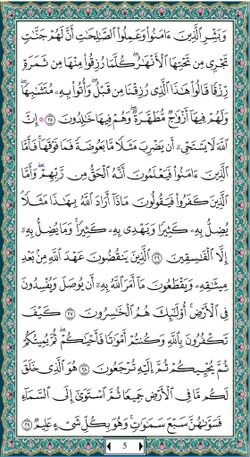 وَبَشِّرِ الَّذِينَ ءَامَنُوا وَعَمِلُوا الصَّالِحَاتِ أَنَّ لَهُمْ جَنَّاتٍ
تَجْرِي مِن تَحْتِهَا الْأَنْهَارُ كُلَّمَا رُزِقُوا مِنْهَا مِن ثَمَرَةٍ
رِّزْقًا قَالُوا هَذَا الَّذِي رُزِقْنَا مِن قَبْلُ وَأُتُوا بِهِ مُتَشَابِهًا
وَلَهُمْ فِيهَا أَزْوَاجٌ مُّطَهَّرَةٌ وَهُمْ فِيهَا خَالِدُونَ ٢٥ إِنَّ
اللَّهَ لَا يَسْتَحْيِي أَن يَضْرِبَ مَثَلًا مَّا بَعُوضَةً فَمَا فَوْقَهَا فَأَمَّا
الَّذِينَ ءَامَنُوا فَيَعْلَمُونَ أَنَّهُ الْحَقُّ مِن رَّبِّهِمْ وَأَمَّا
الَّذِينَ كَفَرُوا فَيَقُولُونَ مَاذَا أَرَادَ اللَّهُ بِهَذَا مَثَلًا
يُضِلُّ بِهِ كَثِيرًا وَيَهْدِي بِهِ كَثِيرًا وَمَا يُضِلُّ بِهِ
إِلَّا الْفَاسِقِينَ ٢٦ الَّذِينَ يَنقُضُونَ عَهْدَ اللَّهِ مِن بَعْدِ
مِيثَاقِهِ وَيَقْطَعُونَ مَا أَمَرَ اللَّهُ بِهِ أَن يُوصَلَ وَيُفْسِدُونَ
فِي الْأَرْضِ أُولَئِكَ هُمُ الْخَاسِرُونَ ٢٧ كَيْفَ
تَكْفُرُونَ بِاللَّهِ وَكُنتُمْ أَمْوَاتًا فَأَحْيَاكُمْ ثُمَّ يُمِيتُكُمْ
ثُمَّ يُحْيِيكُمْ ثُمَّ إِلَيْهِ تُرْجَعُونَ ٢٨ هُوَ الَّذِي خَلَقَ
لَكُم مَّا فِي الْأَرْضِ جَمِيعًا ثُمَّ اسْتَوَى إِلَى السَّمَاءِ
فَسَوَّاهُنَّ سَبْعَ سَمَاوَاتٍ وَهُوَ بِكُلِّ شَيْءٍ عَلِيمٌ ٢٩
5